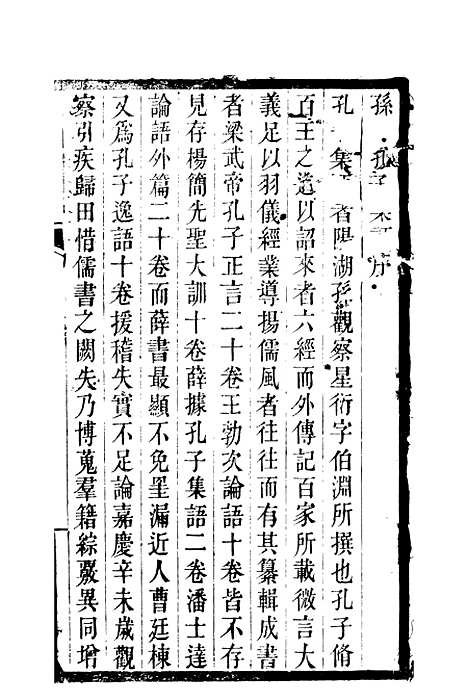 孫 孔子集 序
孔子集 者陽湖孫觀察星衍字伯淵所撰也孔子脩
百王之道以詔來者六經而外傳記百家所載微言大
義足以羽儀經業導揚儒風者往往而有其纂輯成書
者梁武帝孔子正言二十卷王勃次論語十卷皆不存
見存楊簡先聖大訓十卷薛據孔子集語二卷潘士達
論語外篇二十卷而薛書最顯不免罣漏近人曹廷棟
又爲孔子逸語十卷援稽失實不足論嘉慶辛未歲觀
察引疾歸田惜儒書之闕失乃博蒐羣籍綜覈異同增